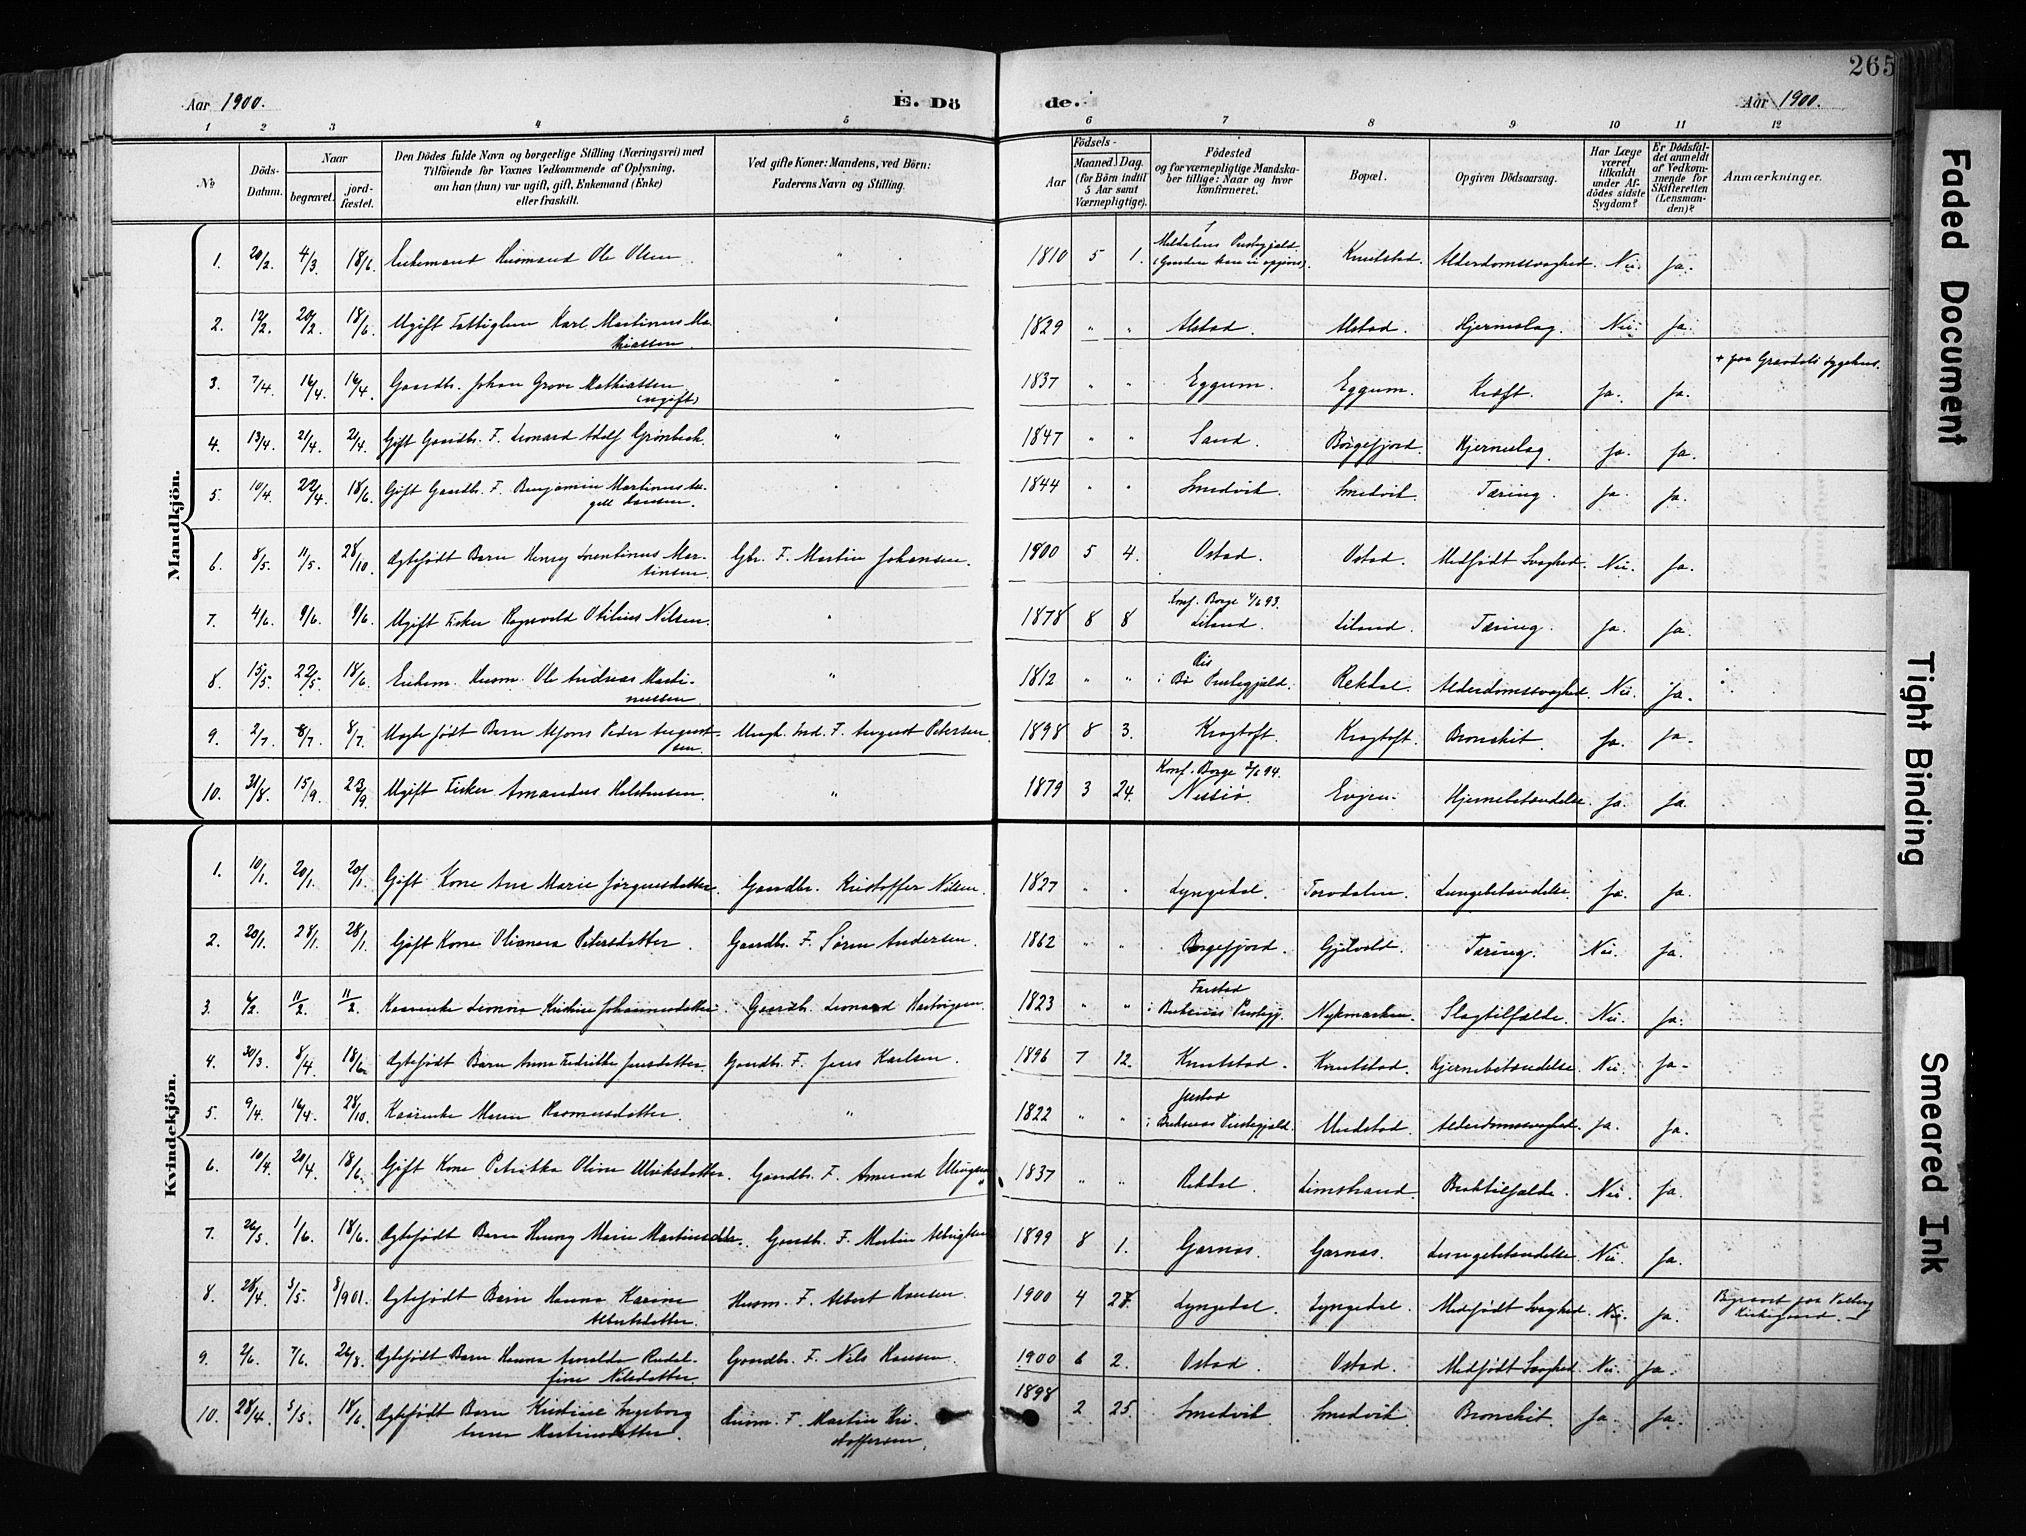 265
Aar 1900. E. Dö de. Aar 1900.
1 2 3 4 5 6 7 8 9 10 11 12
No
Döds-Datum.
Naar
begravet.
jord-fæstet.
Den Dödes fulde Navn og borgerlige Stilling (Næringsvei) med
Tilföiende for Voxnes Vedkommende af Oplysning,
om han (hun) var ugift, gift, Enkemand (Enke)
eller fraskilt.
Ved gifte Koner: Mandens, ved Börn:
Faderens Navn og Stilling.
Födsels-
Aar
Maaned Dag.
(for Börn indtil
5 Aar samt
Værnepligtige).
Födested
og for værnepligtige Mandska-
ber tillige: Naar og hvor
konfirmeret.
Bopæl.
Opgiven Dödsaarsag.
Har Læge
været
tilkaldt
under Af-
dödes sidste
Sygdom?
Er Dödsfal-
det anmeldt
af Vedkom-
mende for
Skifteretten
(Lensman-
den)?
Anmærkninger.
Mandkjön.
1. 20/2. 4/3. 18/6. Enkemand Husmand Ole Olsen " 1810 5 1. Meldalens Prestegjeld. Knutstad. Alderdomssvaghed. Nei. Ja.
2. 12/2. 20/2. 18/6. Ugift Fattiglem Karl Martinus Ma- " 1829 " " Alstad. Alstad. Hjerneslag. Nei. Ja.
thiassen.
3. 7/4. 16/4. 16/4. Gaardb. Johan Grove Mathiassen " 1837 " " Eggum. Eggum. Kræft. Ja. Ja. + paa Gravdals Sygehus.
(ugift)
4. 13/4. 21/4. 21/4. Gift Gaardb. F. Leonard Adolf Grønbech. " 1847 " " Sand. Borgefjord. Hjerneslag. Ja. Ja.
5. 10/4. 22/4. 18/6. Gift Gaardb. F. Benjamin Martinus An- " 1844 " " Smedvik. Smedvik. Tæring. Ja. Ja.
gell Hansen.
6. 8/5. 11/5. 28/10. Ægtefødt Barn Henry Lorentinus Mar- Gbr. F. Martin Johansen. 1900 5 4. Ostad. Ostad. Medfødt Svaghed. Nei. Ja.
tinsen.
7. 4/6. 9/6. 9/6. Ugift Fisker Ragnvald Otilius Nilsen. " 1878 8 8 Konf. Borge 4/6 93. Liland. Liland. Tæring. Ja. Ja.
8. 15/5. 22/5. 18/6. Enkem. Husm. Ole Andreas Marti- " 1812 " " i Bø Prestegjeld. Rekdal. Alderdomssvaghed. Nei. Ja.
nussen
9. 2/7. 8/7. 8/7. Uægtefødt Barn Alfons Peder August- Ungk. Ind. F. August Petersen. 1898 8 3. Kragtoft. Kragtoft. Bronchit. Ja. Ja.
sen
10. 31/8. 15/9. 23/9. Ugift Fisker Amandus Helstensen. " 1879 3 24. Konf. Borge 3/6 94. Nessiø. Evjen. Hjernebetændelse. Ja. Ja.
Kvindekjön.
1. 10/1. 20/1. 20/1. Gift Kone Ane Marie Jørgensdatter. Gaardbr. Kristoffer Nilsen. 1827 " " Lyngedal. Torvdalen. Lungebetændelse. Ja. Ja.
2. 20/1. 28/1. 28/1. Gift Kone Olianna Petersdatter. Gaardb. F. Søren Andersen. 1862 " " Borgefjord. Gjelvold. Tæring. Nei. Ja.
3. 4/2. 11/2. 11/2. Kaarenke Leonora Kristine Johannesdatter. Gaardb. Leonard 1823 " " Farstad i Buksnæs Prestegj. Nykmarken. Slagtilfælde. Nei. Ja.
4. 30/3. 8/4. 18/6. Ægtefødt Barn Anna Fredrikke Jensdatter. Gaardb. F. Jens Karlsen. 1896 7 12. Knutstad. Knutstad. Hjernebetændelse. Nei. Ja.
5. 9/4. 16/4. 28/10. Kaarenke Maren Rasmusdatter. " 1822 " " Justad i Buksnæs Prestegjeld. Unstad. Alderdomssvaghed. Ja. Ja.
6. 10/4. 20/4. 18/6. Gift Kone Petrikka Oline Ulriksdatter. Gaardb. F. Amund 1837 " " Rekdal. Limstrand. Brektilfælde. Nei. Ja.
7. 26/5. 1/6. 18/6. Ægtefødt Barn Henny Marie Martinsdtr. Gaardb. F. Martin Albrigtsen 1899 8 1. Garnas. Garnas. Lungebetændelse. Nei. Ja.
8. 28/4. 3/5. 8/9 01. Ægtefødt Barn Hanna Karine Husm. F. Albert Hansen. 1900 4 27. Lyngedal. Lyngedal. Medfødt Svaghed. Nei. Ja. Begravet paa Valberg
Albertsdatter. Kirkegaard.
9. 2/6. 7/6. 26/8. Ægtefødt Barn Hanna Arnolda Rudol- Gaardb. F. Nils Hansen. 1900 6 2. Ostad. Ostad. Medfødt Svaghed. Nei. Ja.
fine Nilsdatter.
10. 28/4. 5/5. 18/6. Ægtefødt Barn Kristine Ingeborg Husm. F. Martin Kri- 1898 2 25. Smedvik Smedvik Bronchit. Ja. Ja.
Anna Martinsdatter. stoffersen.
Faded Document
Tight Binding
Smeared Ink